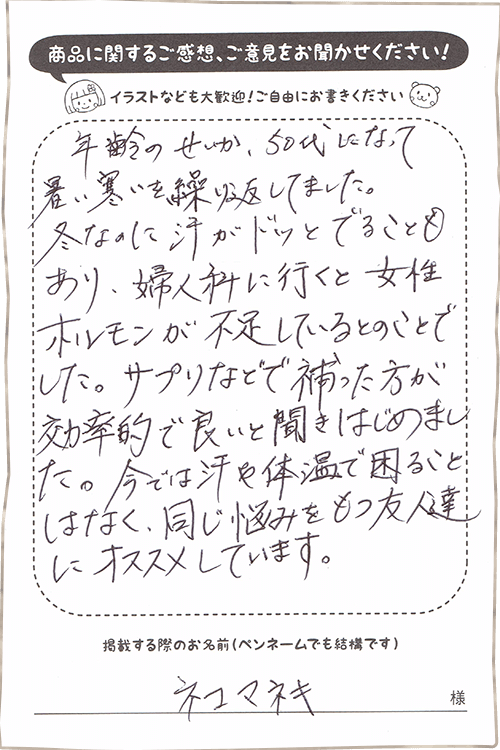 商品に関するご感想、ご意見をお聞かせください!
イラストなども大歓迎!ご自由にお書きください
年齢のせいか、50代になって
暑い寒いを繰り返してました。
冬なのに汗がドッとでることも
あり、婦人科に行くと女性
ホルモンが不足しているとのことで
した。サプリなどで補った方が
効率的で良いと聞きはじめまし
た。今では汗や体温で困ること
はなく、同じ悩みをもつ友人達
にオススメしています。
掲載する際のお名前(ペンネームでも結構です)
ネコマネキ
様